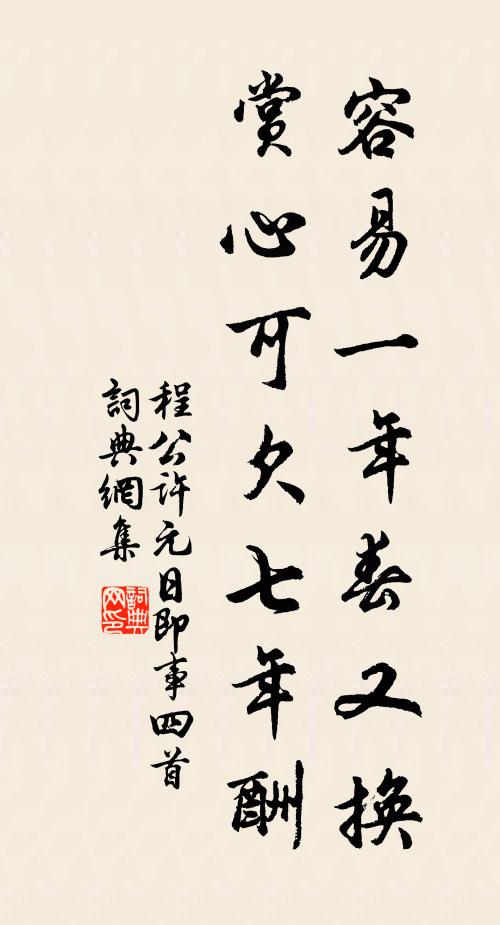 容易一年春又換
賞心可欠七年酬
程公許元日即事四首
詞典網集
詞典网印